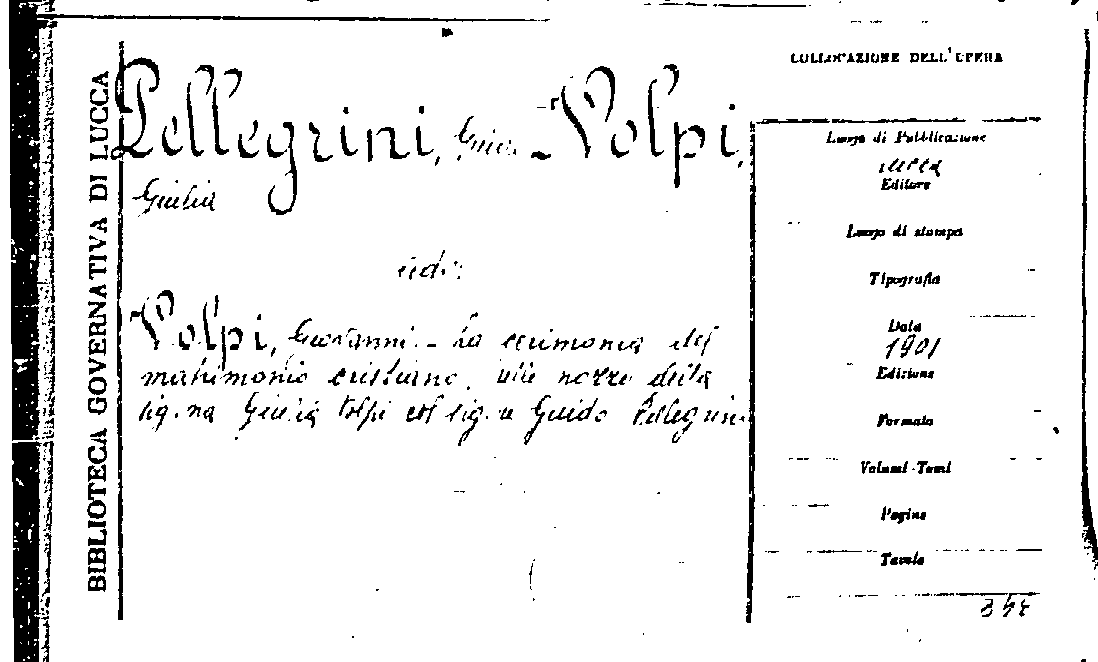 BIBLIOTECA GOVERNATIVA DI LUCCA
Pellegrini, - Volpi,
Giulia
vedi:
Volpi, Giovanni. - La cerimonia del
matrimonio cristiano. Alle nozze della
sig.na Giulia Volpi col sig.r Guido Pellegrini
COLLOCAZIONE DELL'OPERA
Luogo di Pubblicazione
Lucca
Editore
Luogo di stampa
Tipografia
Data
1901
Edizione
Formato
Volumi-Tomi
Pagine
Tavole